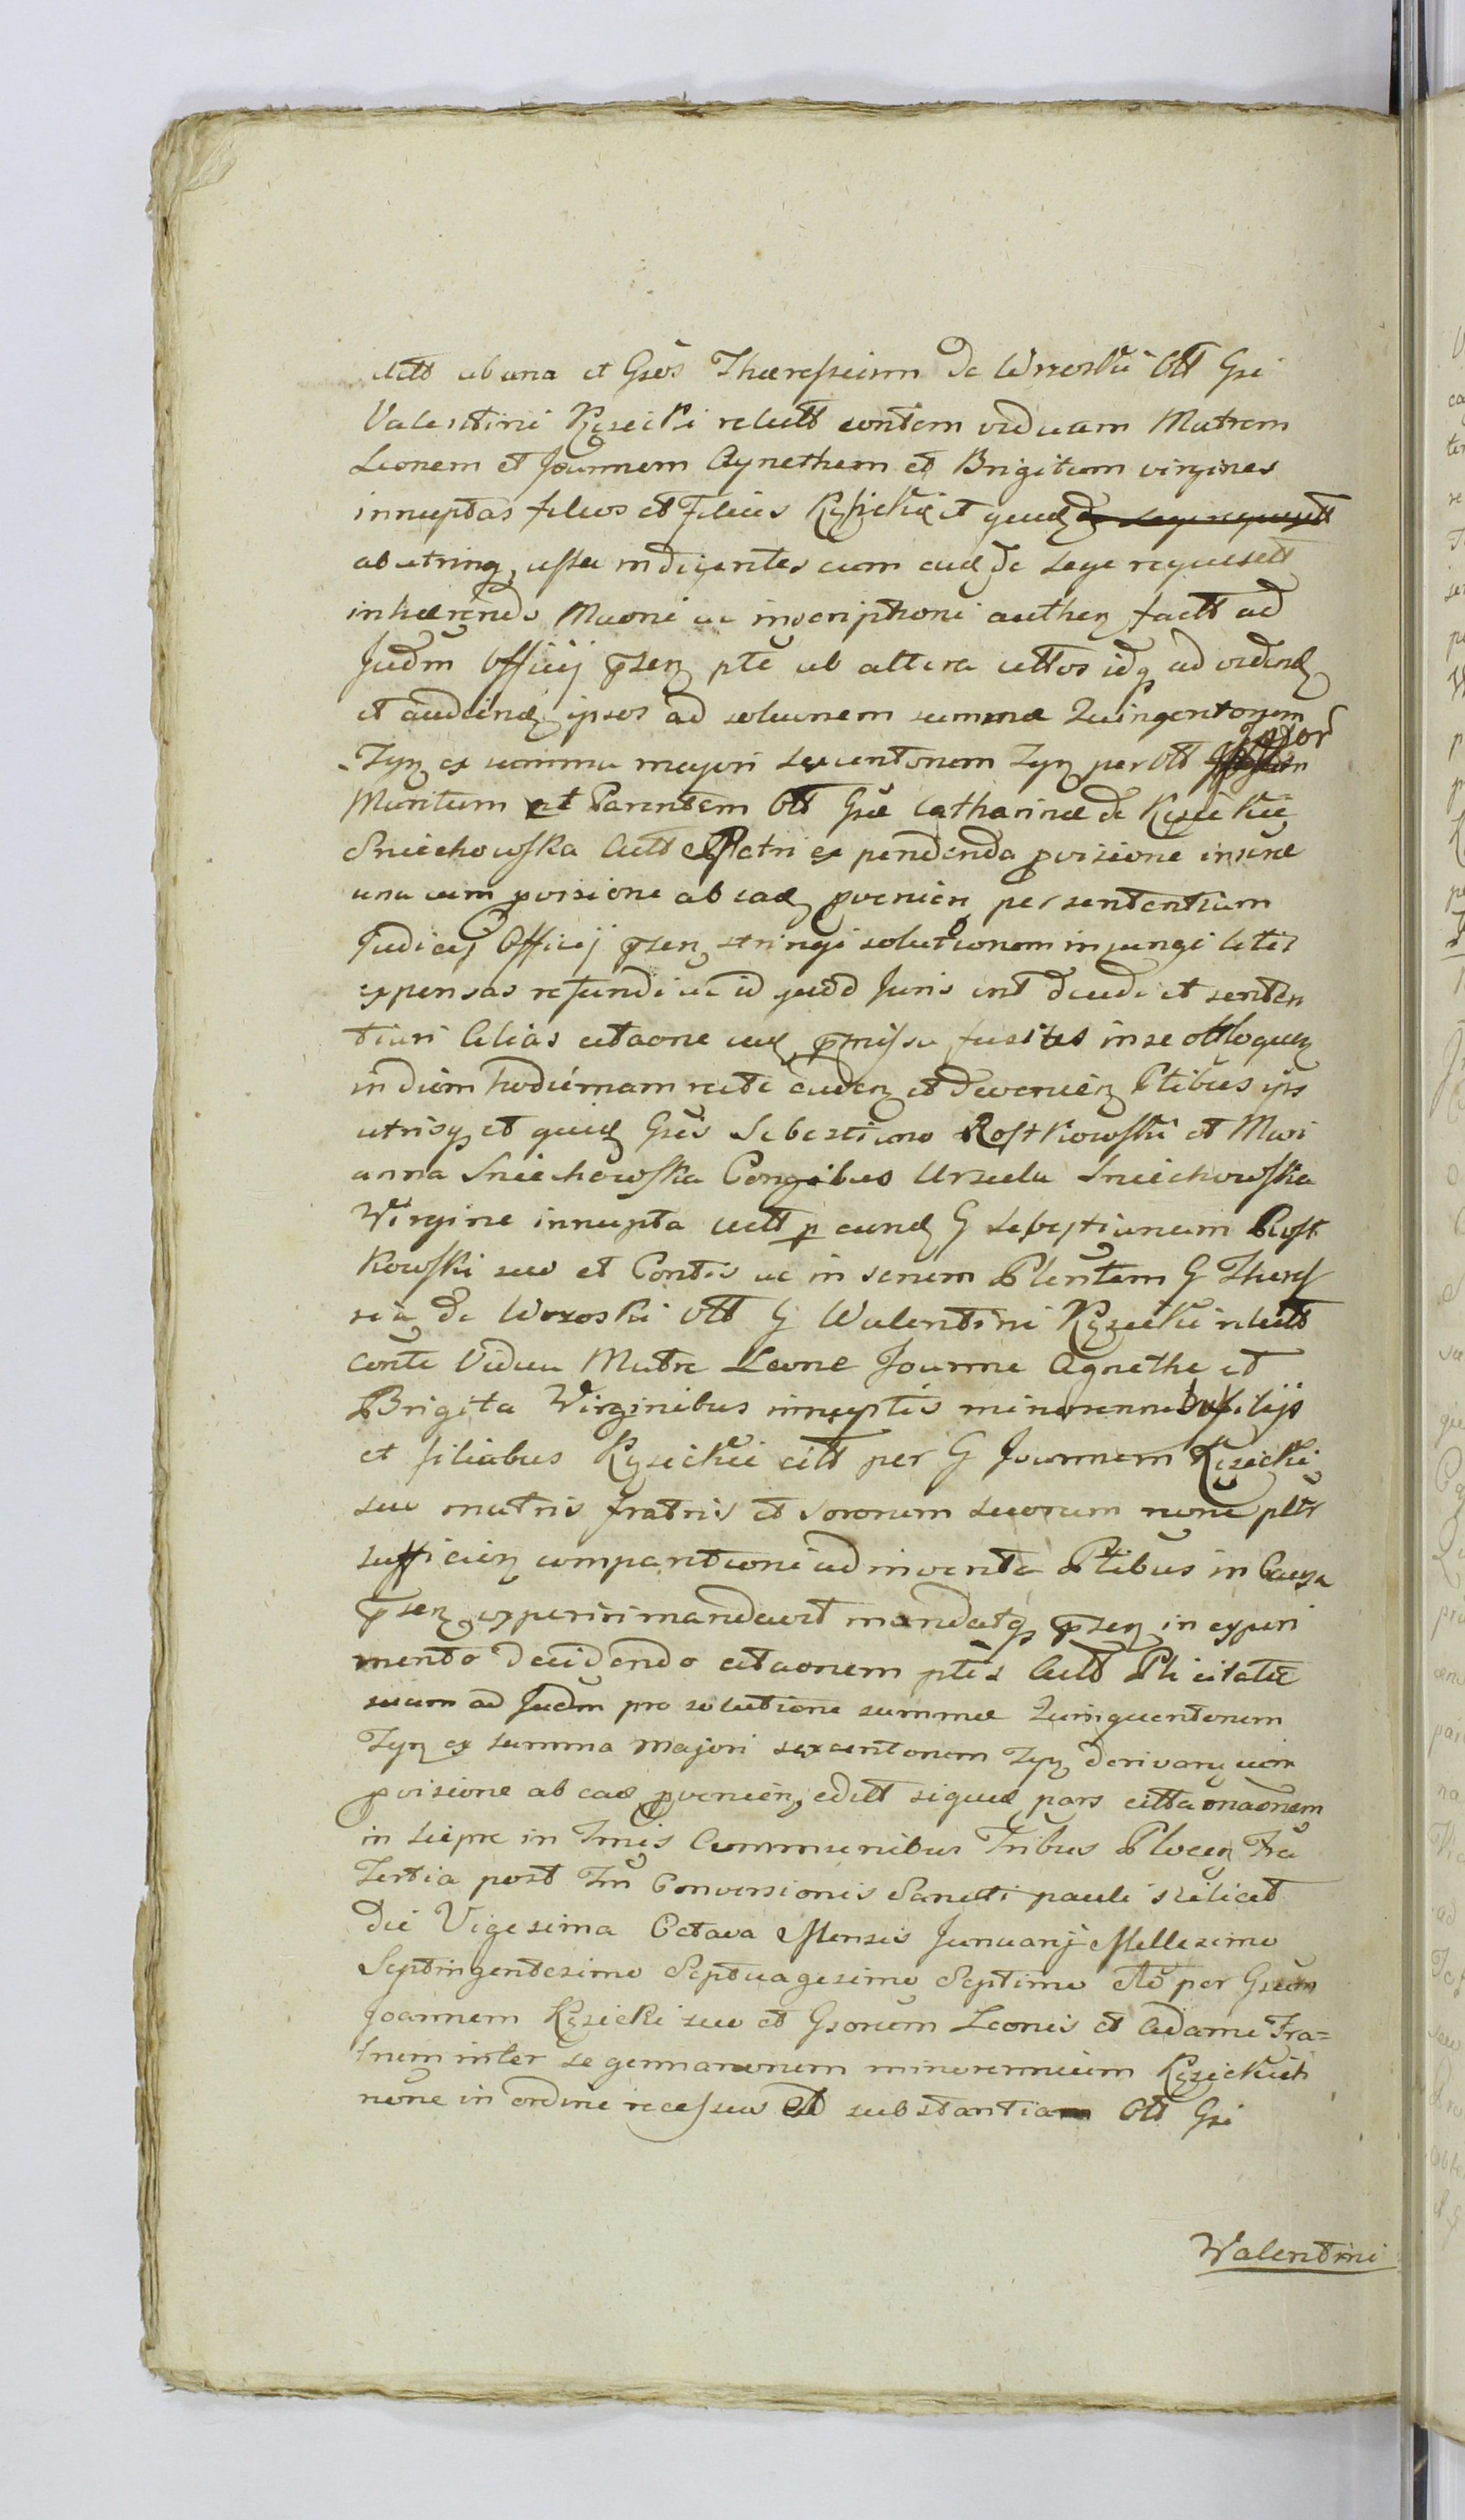 ab una et Gsos Theressiam de Wrroski Ott Gsi
Valentini Kęsicki relictt contem viduam Matrem
Leonem et Joannem Agnethem et Brigitam virgines
innuptas filios et filias Kęsickie et quidz de Lege requisitt
ab utrinq assa indigentes cum eadz de Lege requisitt
inhærendo Maoni ac inscriptioni authen factt ad
Judm Officij psenz pte ab altera cittos idqz ad videndz
et audiendz ipsos ad solucionem summæ Quingentorum
Tyz ex summa majori sexcentorum Tyz per Ott
Maritum et Parentem Ott Gsæ Catharinæ de Kęsickie
Sniechowska Actt Patri ex pendenda pvisione inscrie
una cum pvisione ab eadz pvenien per sententiam
Judicij Officij psenz stringi solutionem injungi litis
expensas refundi ac id quod Juris erit decidi et senten
tiari Alias citaone eadz pmissa fusius in se ottloquenz
in diem hodiernam recte cadenz et devenienz Ptibus ijs
utrisqz et quidz Gsis Sebestiano Rostkowski et Mari
anna Sniechowska Congibus Urszula Sniechowska
Virgine innupta actt p eundz G Sebestianum Rost
kowski suo et Contis ac in senem Plentem G Theres
sia de Wroski Ott G Walentini Kęsickie relictt
conte Vidua Matre Leone Joanne Agnethe et
Brigita Virginibus innuptis minorennibus filijs
et filiabus Kęsickie citt per G Joannem Kęsicki
suo matris fratris et sororum suorum noie pltr
sufficien comparitioni adinvente Ptibus in Causa
psenz experiri mandavit mandatqz psenz in experi
mento decidendo citaonem ptis Actt Pti citatæ
secum ad Judm pro solutione summæ Quinquentorum
Tyz ex summa majori sexcentorum Tyz derivanz cum
pvisione ab eadz pvenien, editt siquidz pars citta onaonem
in se ipse in Tmis Communibus Tribus Plocen Fra
Tertia post Tm Conversionis Sancti pauli scilicet
Die Vigesima Octava Mensis Januarij Millesimo
Septingentesimo Septuagesimo Septimo Ao per Gsum
Joannem Kęsicki suo et Gsorum Leonis et Adami Fra=
trum inter se germanorum minorennium Kęsickich
noie in ordine recessus Ad substantiam Ott Gsi
Walentini